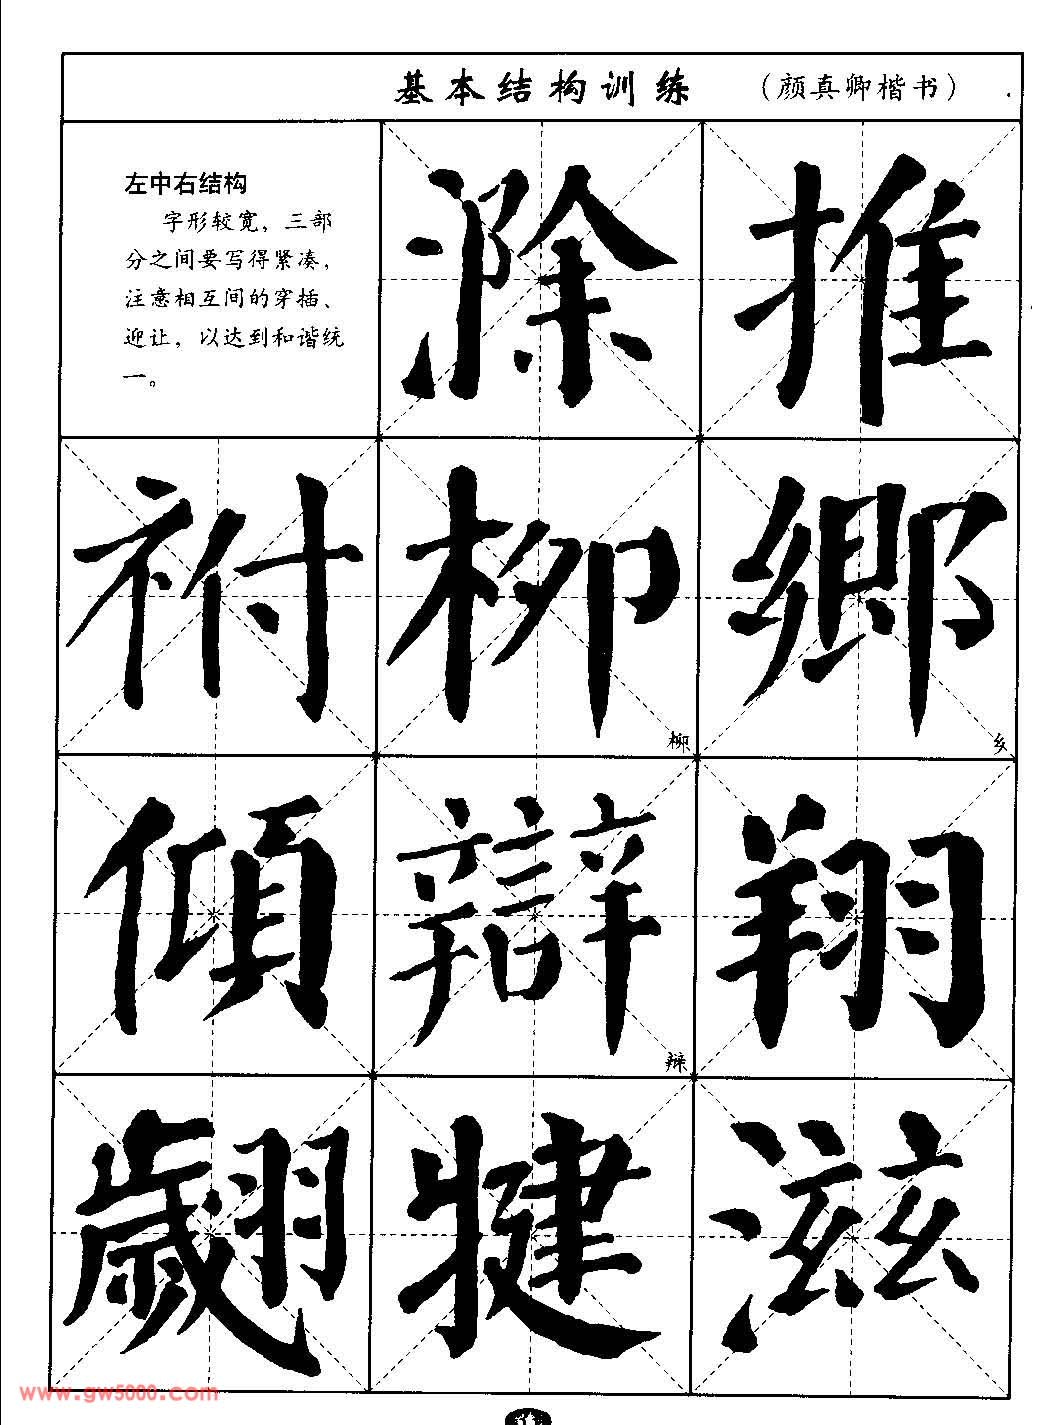 基本结构训练 （颜真卿楷书）
左中右结构
字形较宽，三部
分之间要写得紧凑，
注意相互间的穿插、
迎让，以达到和谐统
一。
滁 推
祔 柳 鄉
柳 乡
傾 辯 翔
辩
翽 犍 滋
www.gw5000.com